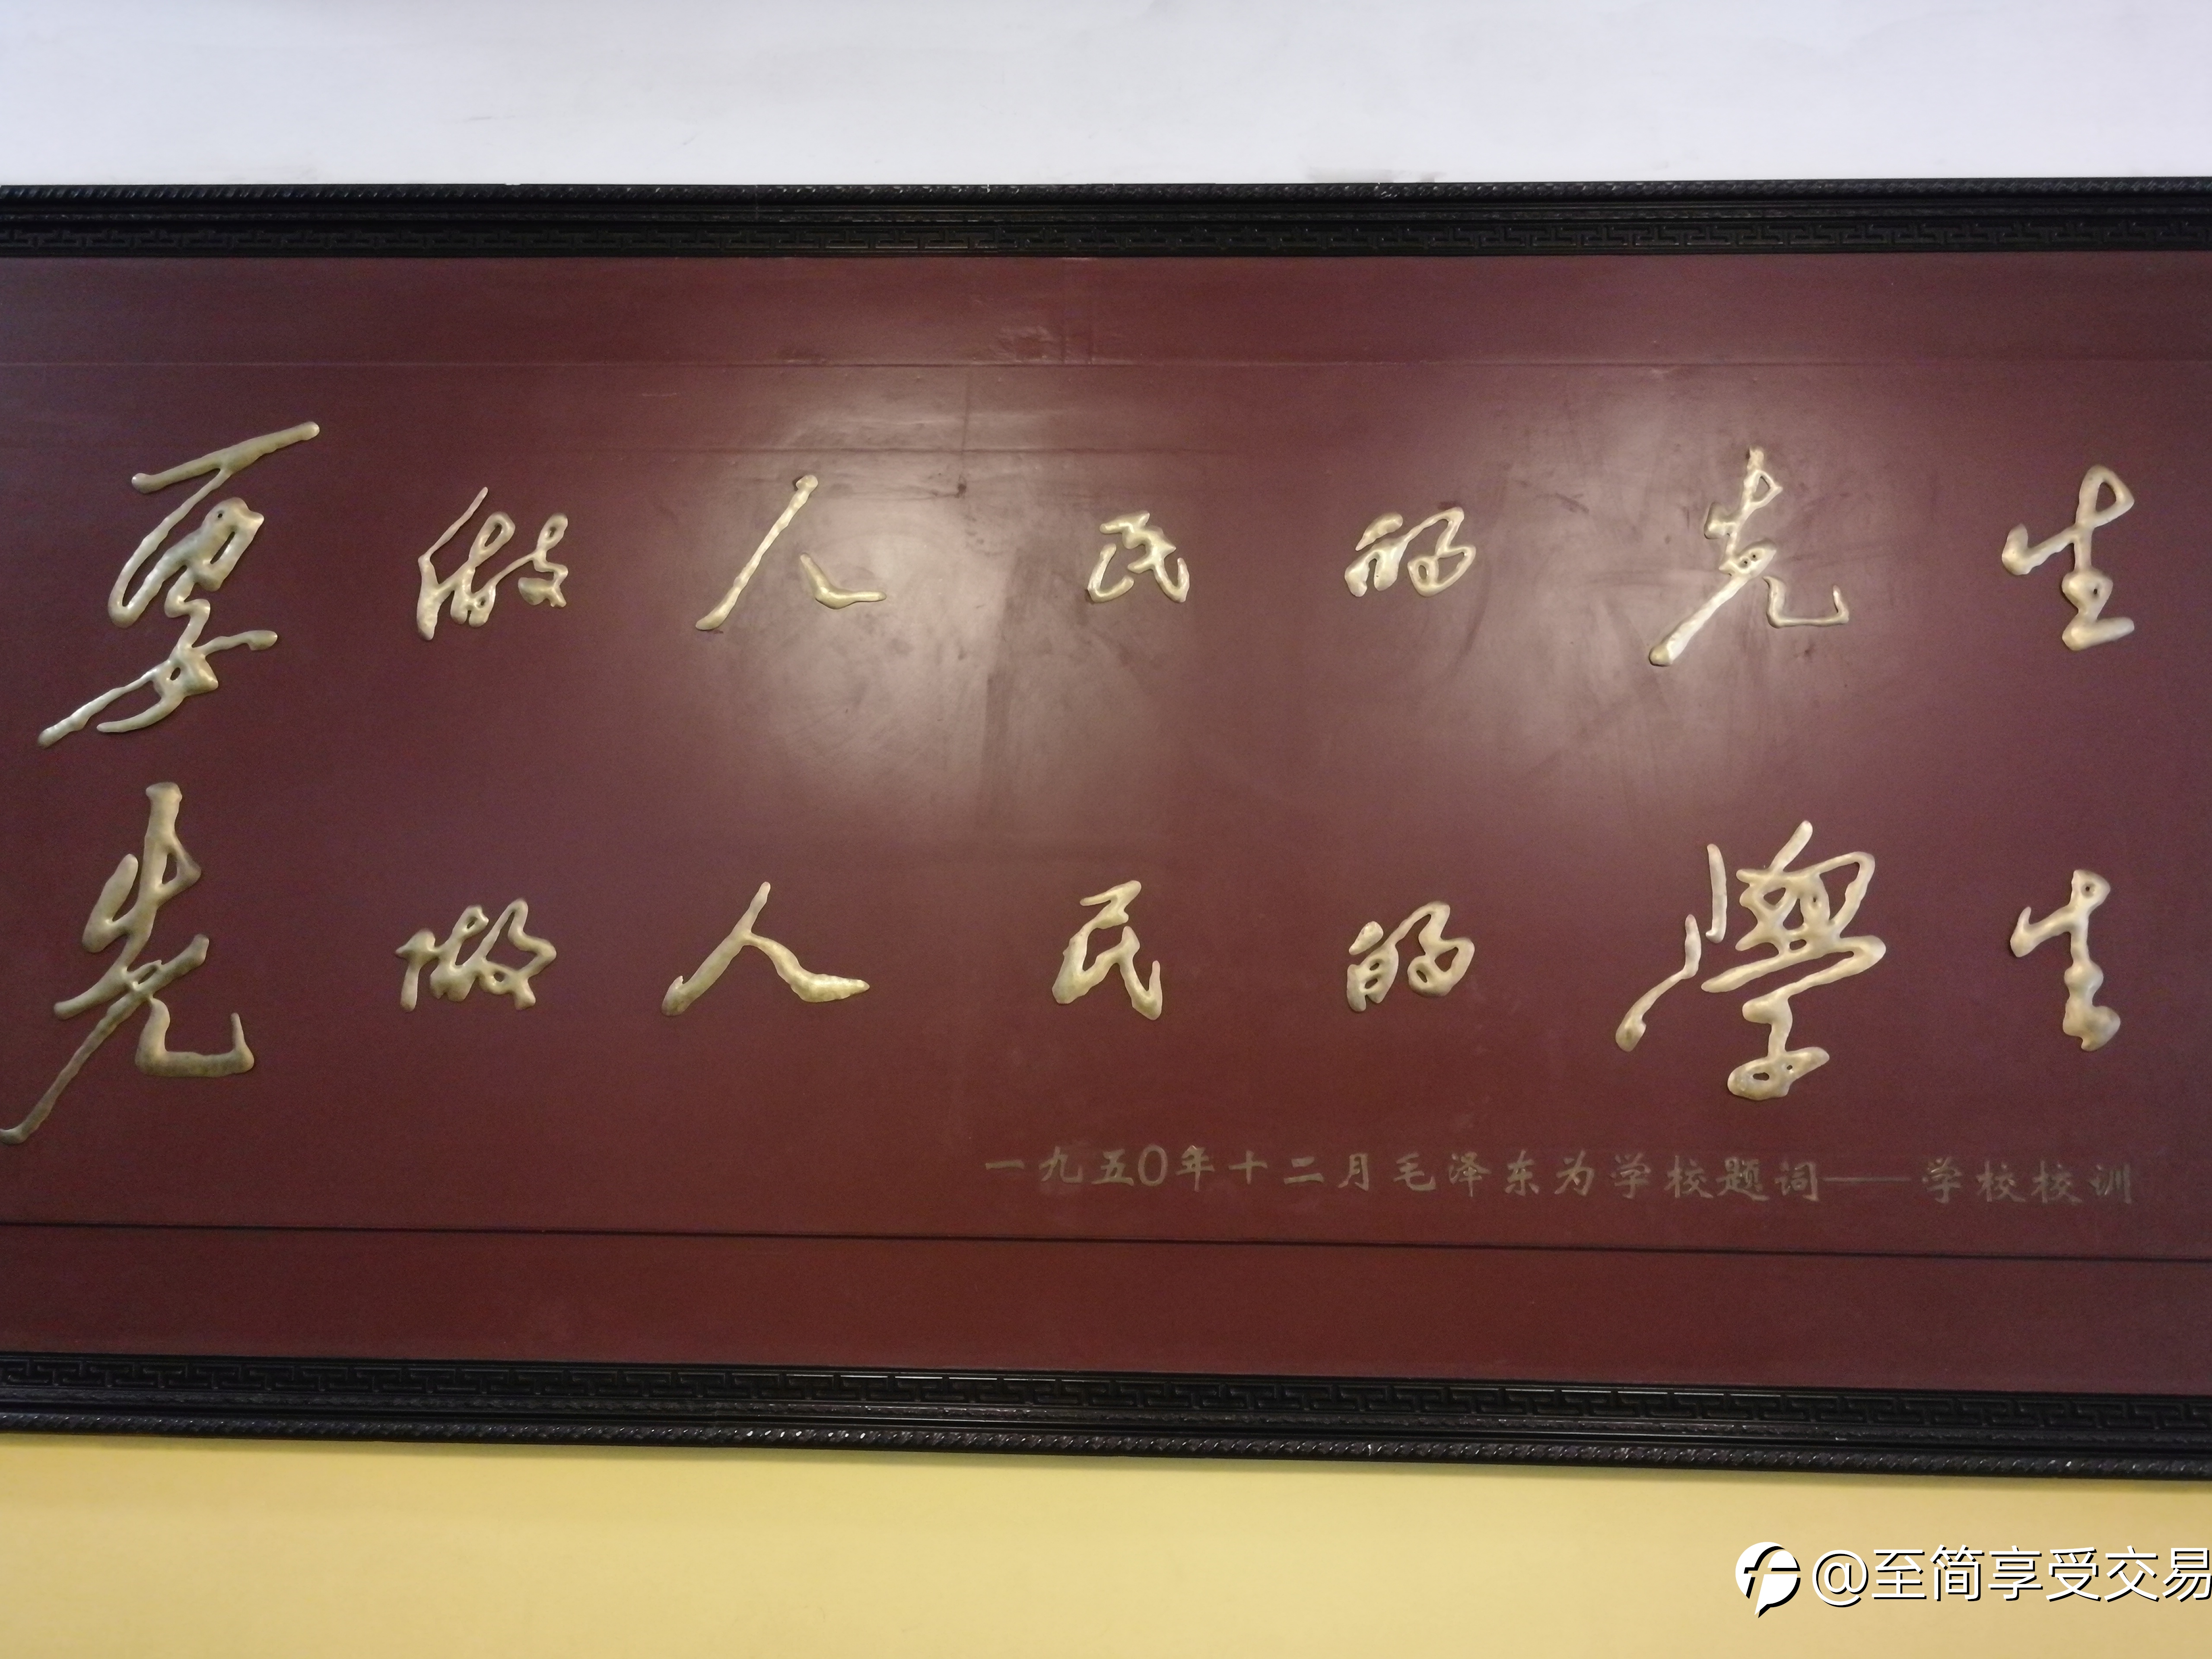 要做人民的先生
先做人民的學生
一九五0年十二月毛泽东为学校题词——学校校训
@至简享受交易